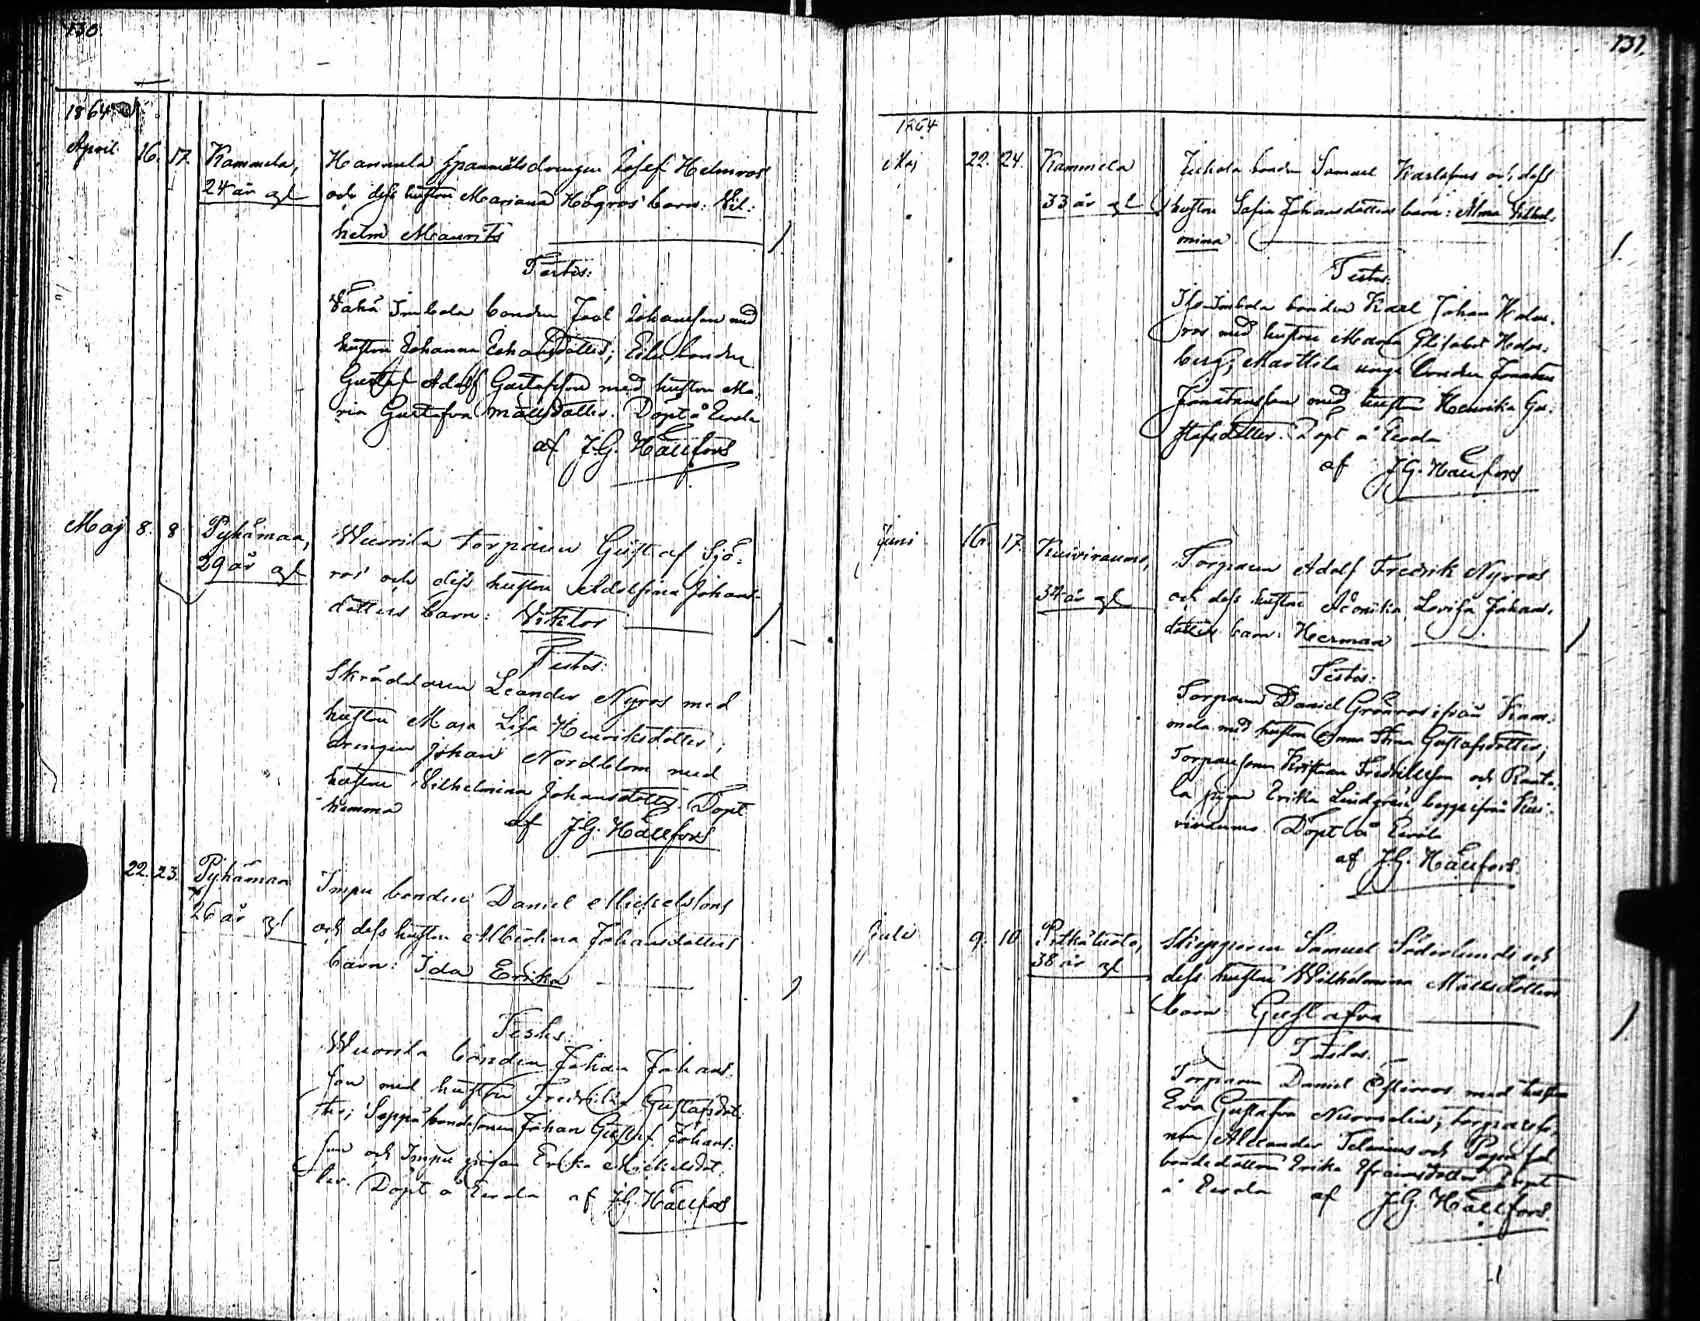 130.
1864
April 16. 17. Kammela,
24 år gl
Hannula spannmålsdrengen Josef Helmros
och dess hustru Mariana Högros' barn: Vil-
helm Maurits
Testes:
Vähä Simbola bonden Joel Johansson med
hustru Johanna Johansdotter; Eila bonden
Gustaf Adolf Gustafsson med hustru Ma-
ria Gustafva Mattsdotter. Döpt å
af J.G. Hällfors
Maj 8. 8 Pyhämaa,
29 år gl
Wuorila torparen Gustaf Sjö-
ros' och dess hustru Adolfina Johans-
dotters barn: Viktor
Testes:
Skräddaren Leander Nyros med
hustru Maja Lisa Henriksdotter;
drengen Johan Nordblom med
hustru Vilhelmina Johansdotter Döpt
hemma af J.G. Hällfors
22. 23. Pyhämaa
26 år gl
Impu bonden Daniel Michelssons
och dess hustru Albertina Johansdotters
barn: Ida Erika
Testes:
Wuorila bonden Johan Johans-
son med hustru Fredrika Gustafsdot-
ter; Seppä bondesonen Johan Gustaf Johans-
son och Impu pigan Erika Mickelsdot-
ter. Döpt å af J.G. Hällfors
131.
1864
Maj 22. 24. Kammela
33 år gl
bonden Samuel Karlssons och dess
hustru Sofia Johansdotters barn: Alma Vilhel-
mina
Testes:
Iso-Simbola bonden Karl Johan Helm-
ros med hustru Maria Elisabet Heden-
berg; Marttila unge bonden Jonatan
Jonatansson med hustru Henrika Gu-
stafsdotter. Döpt å
af J.G. Hällfors
Juni 16. 17. Kuivirauma,
34 år gl
Torparen Adolf Fredrik Nyroos
och dess hustru Lovisa Johans-
dotters barn: Herman
Testes:
Torparen Daniel Grönroos ifrån Kam-
mela med hustru Anna Stina Gustafsdotter;
Torparesonen Kristian Fredriksson och
pigan Erika Lindgren begge ifrån Kui-
virauma. Döpt å
af J.G. Hällfors.
Juli 9. 10. Pitkäluoto,
38 år gl
Skepparen Samuel Söderlunds och
dess hustru Wilhelmina Mattsdotters
barn Gustafva
Testes:
Torparen Daniel Österroos med hustru
Eva Gustafva Nurmelin; torpareso-
nen Alexander Telenius och
bondedottren Erika Efraimsdotter Döpt
å af J.G. Hällfors